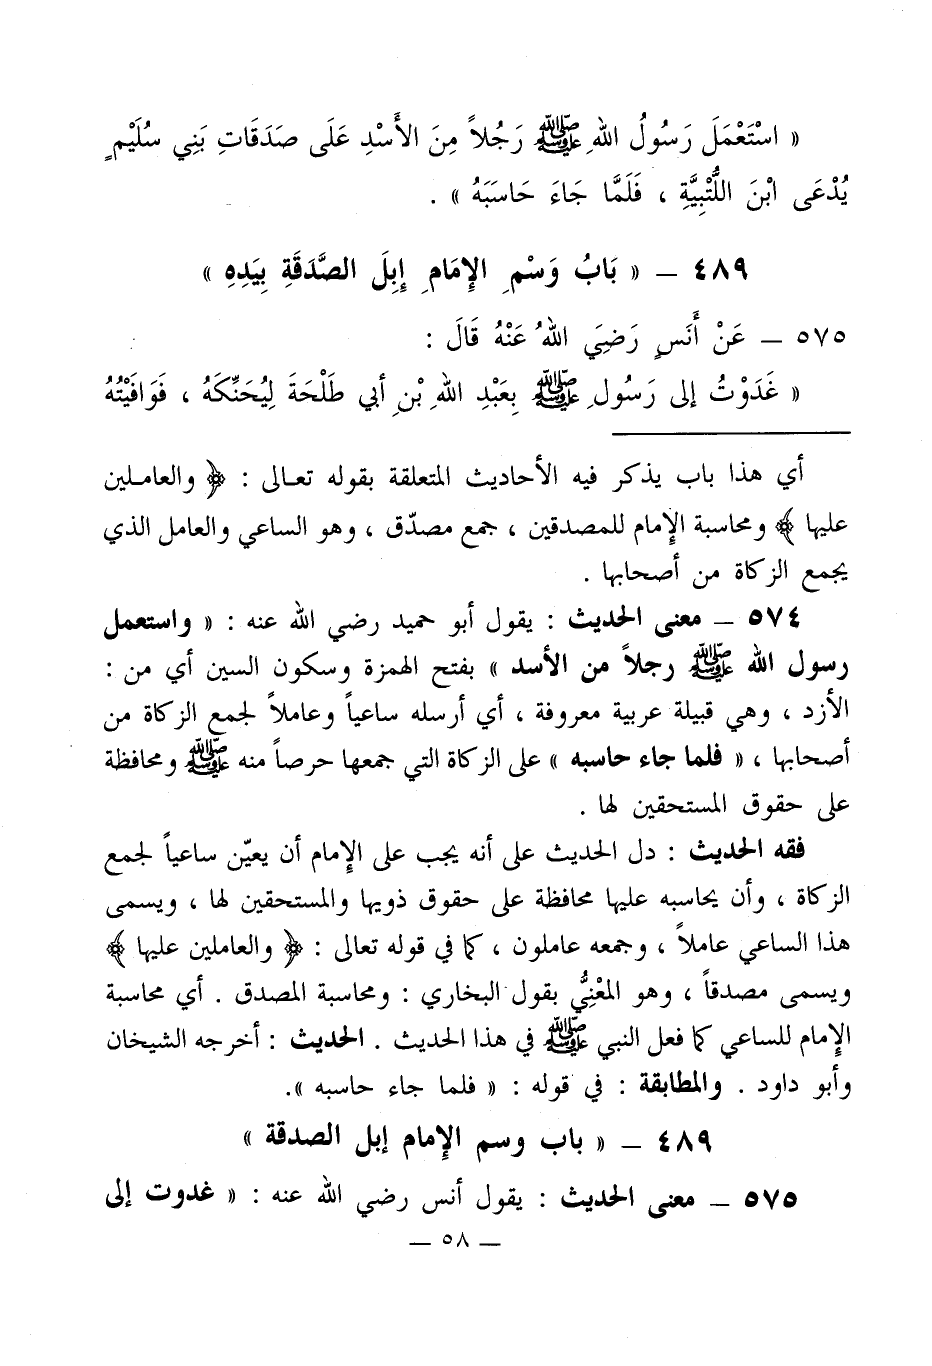 « اسْتَعْمَلَ رَسُولُ اللهِ ﷺ رَجُلاً مِنَ الأَسْدِ عَلَى صَدَقَاتِ بَنِي سُلَيْمٍ
يُدْعَى ابْنَ اللُّتْبِيَّةِ ، فَلَمَّا جَاءَ حَاسَبَهُ » .
٤٨٩ – « بَابُ وَسْمِ الإِمَامِ إِبِلَ الصَّدَقَةِ بِيَدِهِ »
٥٧٥ – عَنْ أَنَسٍ رَضِيَ اللهُ عَنْهُ قَالَ :
« غَدَوْتُ إلى رَسُولِ ﷺ بِعَبْدِ اللهِ بْنِ أبي طَلْحَةَ لِيُحَنِّكَهُ ، فَوَافَيْتُهُ
أي هذا باب يذكر فيه الأحاديث المتعلقة بقوله تعالى : ﴿ والعاملين
عليها ﴾ ومحاسبة الإمام للمصدقين ، جمع مصدّق ، وهو الساعي والعامل الذي
يجمع الزكاة من أصحابها .
٥٧٤ – معنى الحديث : يقول أبو حميد رضي الله عنه : « واستعمل
رسول الله ﷺ رجلاً من الأسد » بفتح الهمزة وسكون السين أي من :
الأزد ، وهي قبيلة عربية معروفة ، أي أرسله ساعياً وعاملاً لجمع الزكاة من
أصحابها ، « فلما جاء حاسبه » على الزكاة التي جمعها حرصاً منه ﷺ ومحافظة
على حقوق المستحقين لها .
فقه الحديث : دل الحديث على أنه يجب على الإمام أن يعيّن ساعياً لجمع
الزكاة ، وأن يحاسبه عليها محافظة على حقوق ذويها والمستحقين لها ، ويسمى
هذا الساعي عاملاً ، وجمعه عاملون ، كما في قوله تعالى : ﴿ والعاملين عليها ﴾
ويسمى مصدقاً ، وهو المعْنِيُّ بقول البخاري : ومحاسبة المصدق . أي محاسبة
الإمام للساعي كما فعل النبي ﷺ في هذا الحديث . الحديث : أخرجه الشيخان
وأبو داود . والمطابقة : في قوله : « فلما جاء حاسبه ».
٤٨٩ – « باب وسم الإمام إبل الصدقة »
٥٧٥ – معنى الحديث : يقول أنس رضي الله عنه : « غدوت إلى
– ٥٨ –